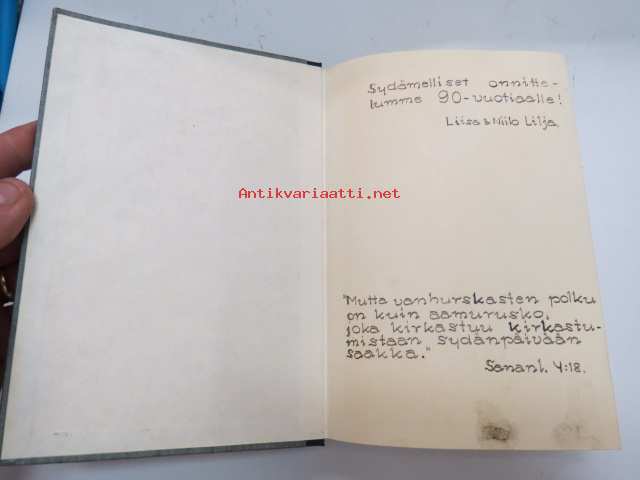 Sydämelliset onnitte-
lumme 90-vuotiaalle!
Liisa & Niilo Lilja.
Antikvariaatti.net
"Mutta vanhurskasten polku
on kuin aamurusko,
joka kirkastuu kirkastu-
mistaan sydänpäivään
saakka."
Sananl. 4:18.